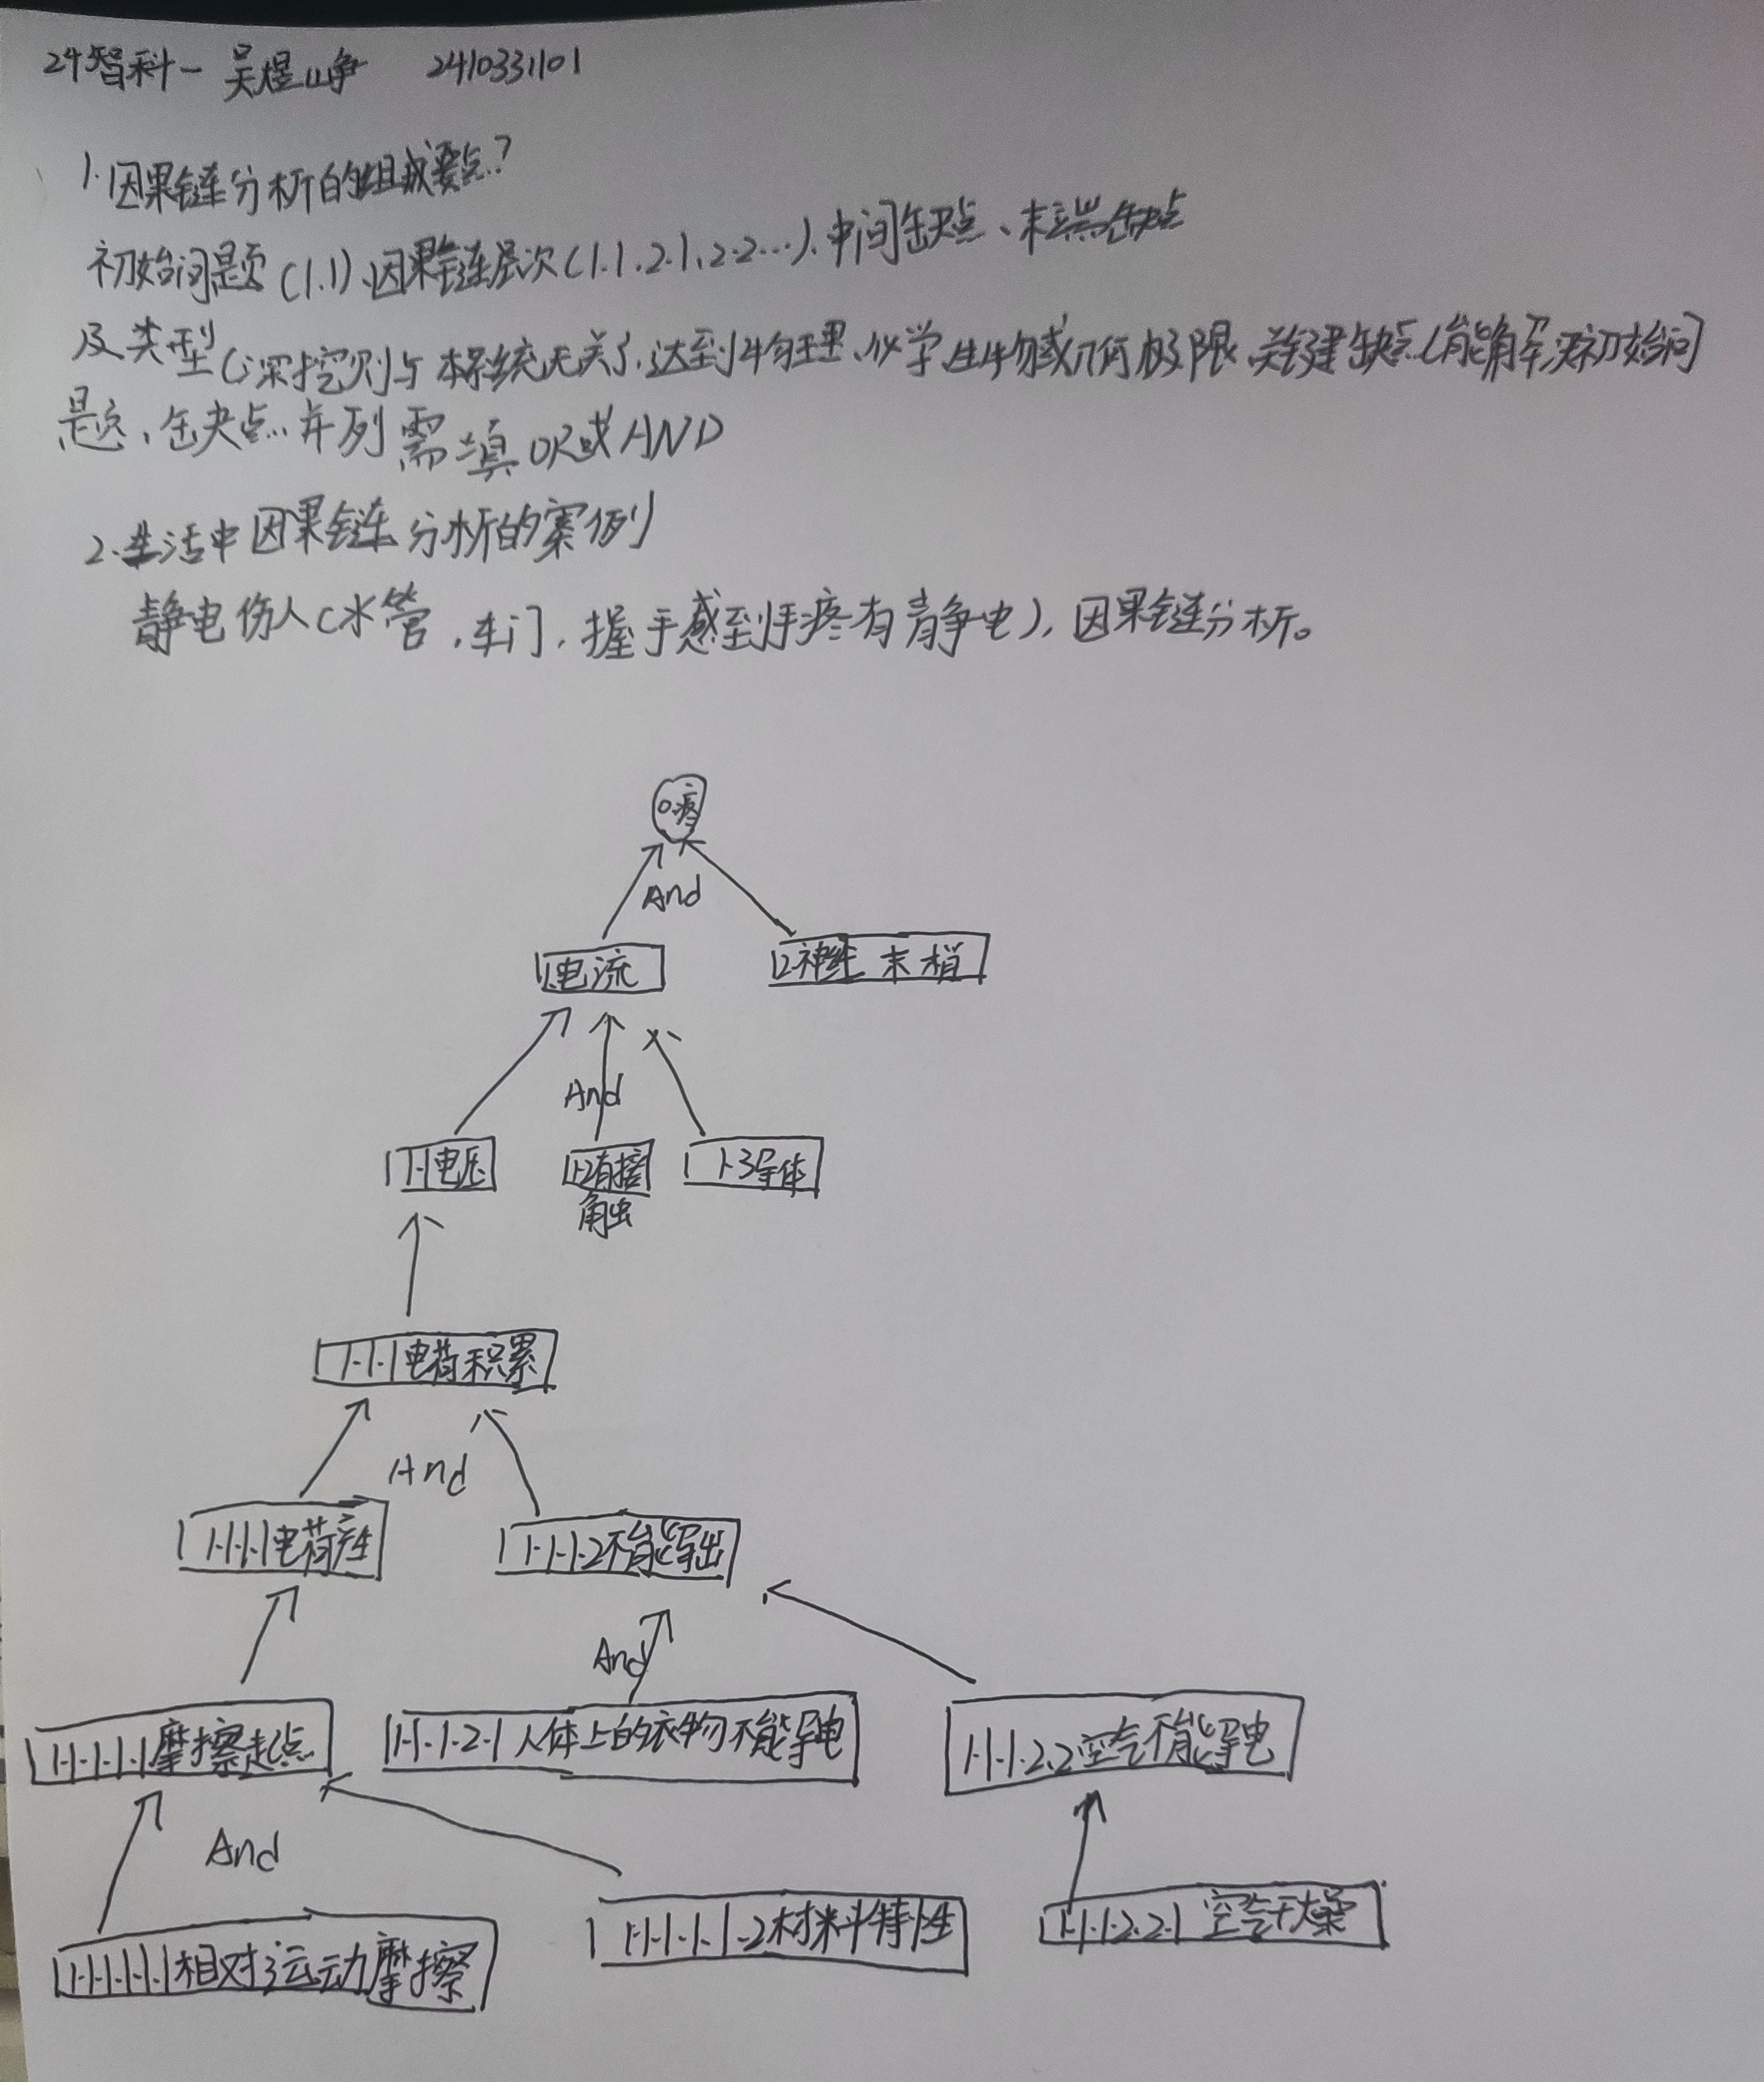 24智科一 吴煜峥 2410331101
1.因果链分析的组成要点?
初始问题(1.1)、因果链层次(1.1,2.1,2.2…)、中间缺点、末端缺点
及类型(深挖则与本系统无关了,达到物理、化学生物或几何极限,关键缺点(能解决初始问
题、缺点并列需填OR或AND
2.生活中因果链分析的案例
静电伤人(水管,车门,握手感到手疼有静电),因果链分析。
0.疼
And
1.电流
1.2神经末梢
And
1.1电压
1.2有接
触
1.3导体
1.1.1电荷积累
And
1.1.1.1电荷产生
1.1.1.2不能导出
And
1.1.1.1.1摩擦起点
1.1.1.2.1人体上的衣物不能导电
1.1.1.2.2空气不能导电
And
1.1.1.1.1.1相对运动摩擦
1.1.1.1.1.2材料特性
1.1.1.2.2.1空气干燥